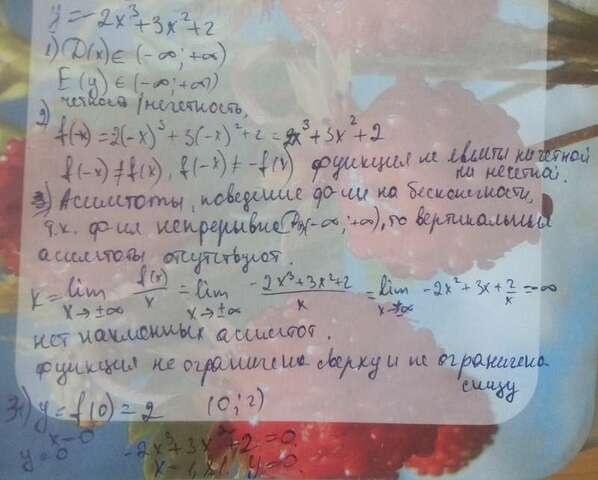 y = -2x³+3x²+2
1) D(x) ∈ (-∞; +∞)
E(y) ∈ (-∞; +∞)
2) четность/нечетность,
f(-x) = 2(-x)³ + 3(-x)²+2 = 2x³+3x²+2
f(-x) ≠ f(x), f(-x) ≠ -f(x) функция не явл ни четной
ни нечетной.
3) Асимптоты, поведение ф-ии на бесконечности,
т.к. ф-ия непрерывна (-∞; +∞), то вертикальные
асимптоты отсутствуют.
K = lim x→±∞ f(x)/x = lim x→±∞ -2x³+3x²+2/x = lim x→±∞ -2x²+3x+2/x = -∞
нет наклонных асимптот.
функция не ограничена сверху и не ограничена
снизу
y = f(0) = 2 (0; 2)
x=0
y=0 -2x³+3x²+2=0
y=0.